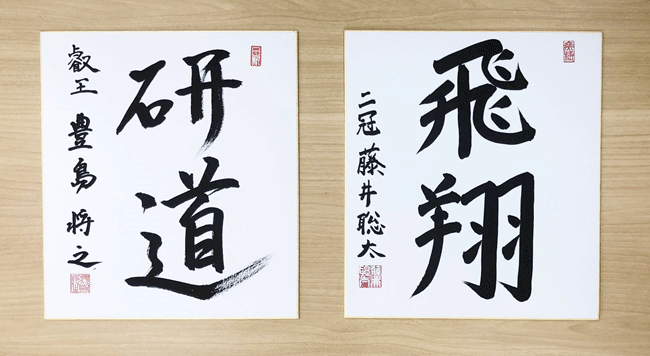 研道
叡王 豊島将之
飛翔
二冠 藤井聡太